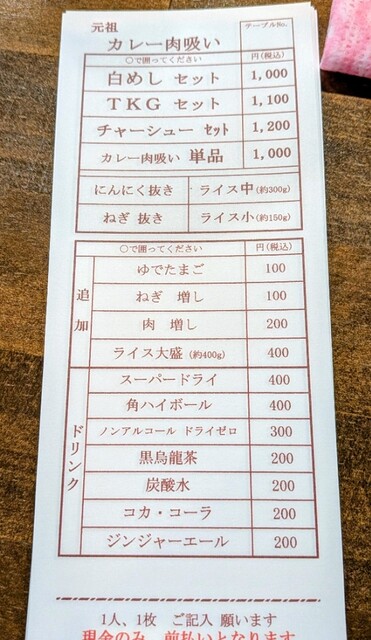 元祖
カレー肉吸い
テーブルNo.
○で囲ってください 円(税込)
白めし セット 1,000
TKG セット 1,100
チャーシュー セット 1,200
カレー肉吸い 単品 1,000
にんにく抜き ライス中(約300g)
ねぎ 抜き ライス小(約150g)
○で囲ってください 円(税込)
追加
ゆでたまご 100
ねぎ 増し 100
肉 増し 200
ライス大盛(約400g) 400
ドリンク
スーパードライ 400
角ハイボール 400
ノンアルコール ドライゼロ 300
黒烏龍茶 200
炭酸水 200
コカ・コーラ 200
ジンジャーエール 200
1人、1枚 ご記入 願います
現金のみ 前払いとなります